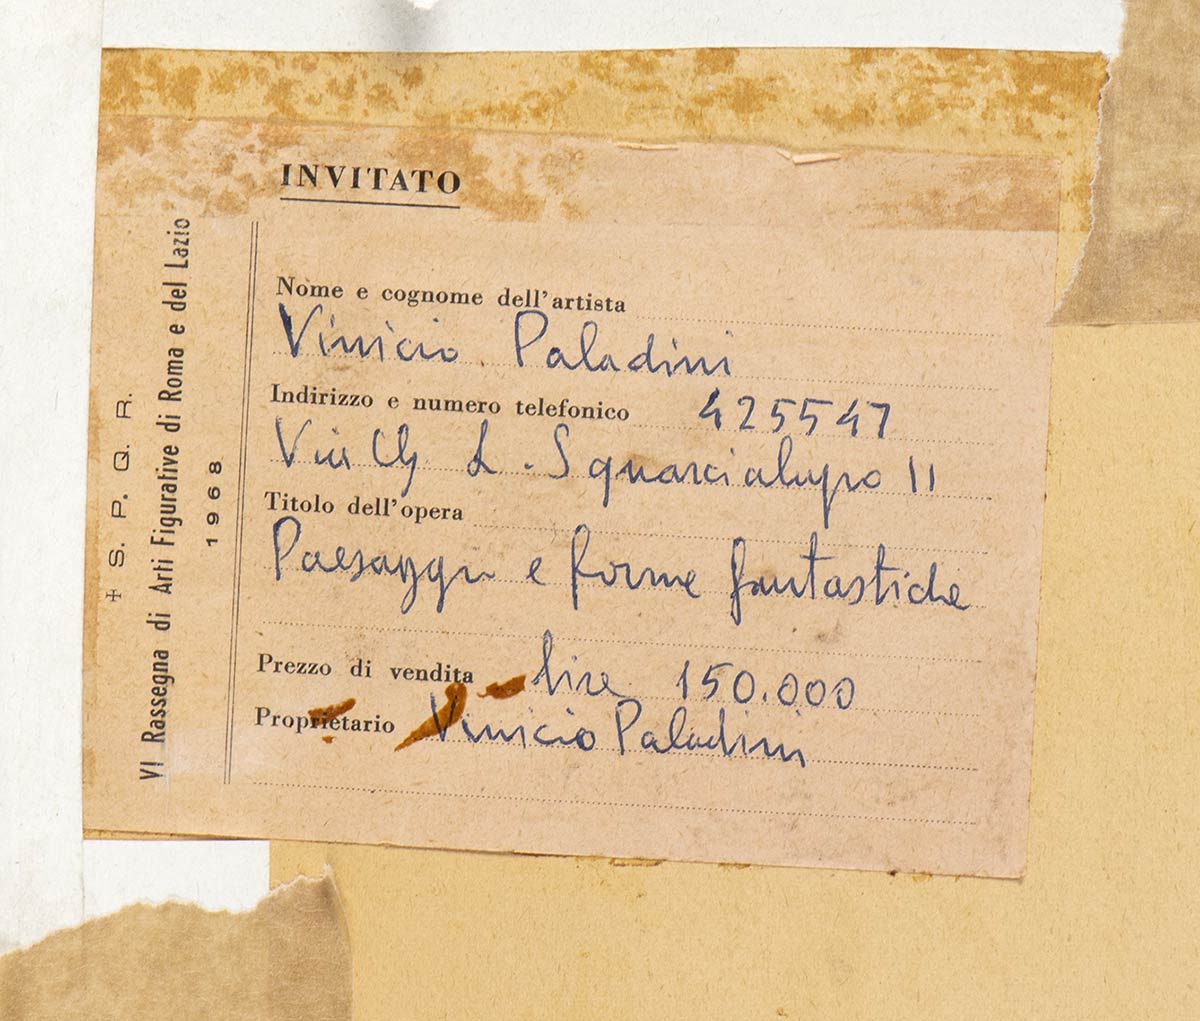 INVITATO
✠ S. P. Q. R.
VI Rassegna di Arti Figurative di Roma e del Lazio
1968
Nome e cognome dell'artista
Vinicio Paladini
Indirizzo e numero telefonico 425547
Via G L. Squarcialupo 11
Titolo dell'opera
Paesaggi e forme fantastiche
Prezzo di vendita lire 150.000
Proprietario Vinicio Paladini